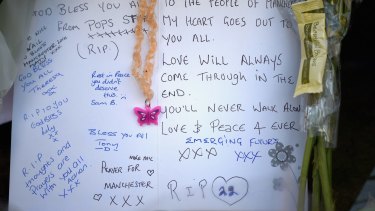 GOD BLESS YOU ALL
FROM POPS
(RIP)
GOD
BLESS
YOU
ALL
R.I.P TO YOU
GODBLESS
R.I.P
thoughts and
Prayers are
with you all
xxx
Rest in Peace
you didn't
deserve
this.
Sam B.
BLESS YOU ALL
Tony
PRAYER FOR
MANCHESTER
XXX
TO THE PEOPLE OF
MY HEART GOES OUT TO
YOU ALL.
LOVE WILL ALWAYS
COME THROUGH IN THE
END.
YOU'LL NEVER WALK
LOVE & PEACE 4 EVER
EMERGING FUTURE
XXX XXX
RIP 22